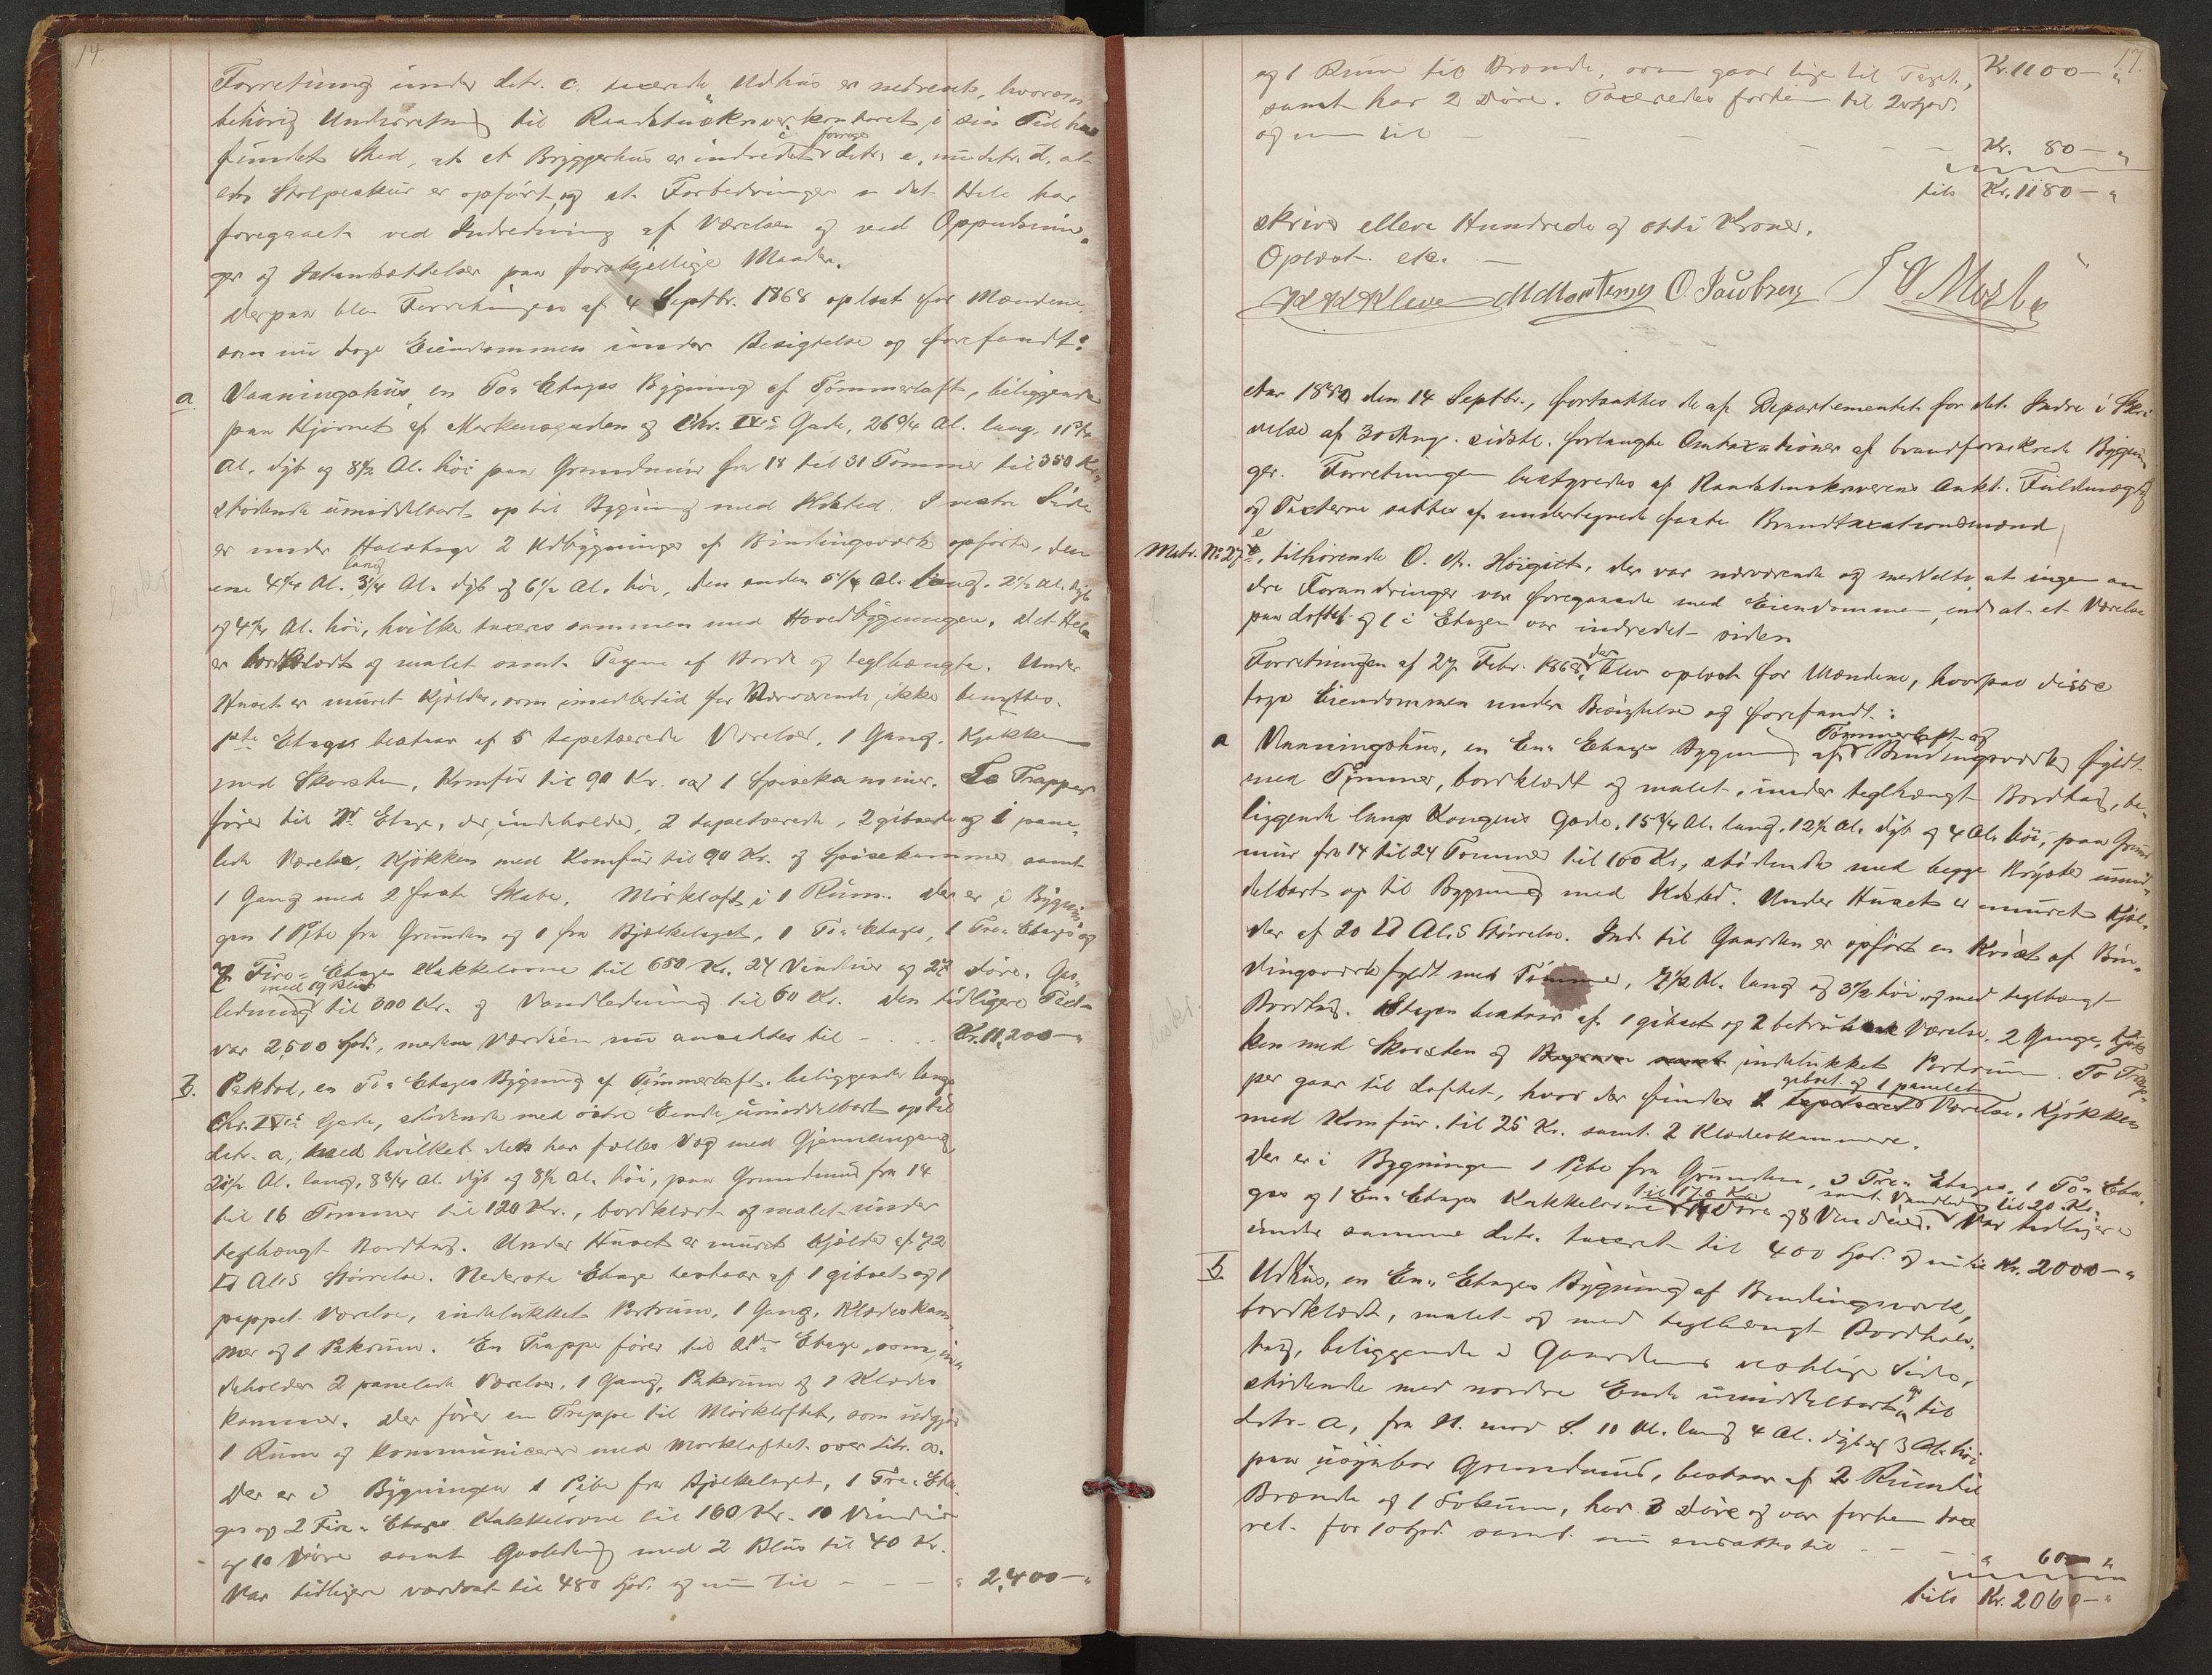 14.
Forretning under Litr. c. taxerede Udhus er nedrevet, hvorom
behörig Underretning til Raadstueskriverkontoret i sin Tid har
fundet Sted, at et Bryggerhus er indredet i forrige Litr. e, nu Litr. d, at
et Stolpeskur er opfört og at Forbedringer i det Hele har
foregaaet ved Indredning af Værelser og ved Oppudsnin-
ger og Istandsættelser paa forskjellige Maader.
Derpaa blev Forretningen af 4 Septbr. 1868 oplæst for Mændene,
som nu toge Eiendommen under Besigtelse og forefandt:
a. Vaaningshus, en To-Etages Bygning af Tömmerlaft, beliggende
paa Hjörnet af Markensgaden og Chr. IV's Gade, 26 3/4 Al. lang, 11 3/4
Al. dyb og 8 1/2 Al. höi paa Grundmur fra 18 til 31 Tommer til 350 Kr.,
stödende umiddelbart op til Bygning med Ildsted. I vestre Side
er under Halvtage 2 Udbygninger af Bindingsværk opförte, den
ene 4 1/4 Al. lang 3 1/4 Al. dyb og 6 1/2 Al. höi, den anden 5 1/4 Al. lang, 2 1/2 Al. dyb
og 4 1/4 Al. höi, hvilke taxeres sammen med Hovedbygningen. Det Hele
er bordklædt og malet samt Tagene af Bord og teglhængte. Under
Huset er muret Kjelder, som imidlertid for Nærværende ikke benyttes.
1ste Etage bestaar af 5 tapetserede Værelser, 1 Gang, Kjökken
med Skorsten, Komfur til 90 Kr. og 1 Spisekammer. To Trapper
förer til 2d Etage, der indeholder 2 tapetserede, 2 gibsede og 1 pane-
lede Værelse, Kjökken med Komfur til 90 Kr. og Spisekammer samt
1 Gang med 2 faste Skabe. Mörkloft i 1 Rum. Der er i Bygnin-
gen 1 Pibe fra Grunden og 1 fra Bjælkelaget, 1 To-Etages, 1 Tre-Etages og
7 Fire-Etages Kakkelovne til 650 Kr. 24 Vinduer og 27 Döre. Gas-
ledning med 19 Blus til 300 Kr. og Vandledning til 60 Kr. Den tidligere Taxt
var 2500 Spd., medens Værdien nu ansættes til - - - Kr. 11,200 - "
b. Pakbod, en To-Etages Bygning af Tömmerlaft, beliggende langs
Chr. IV's Gade, stödende med östre Ende umiddelbart op til
Litr. a, med hvilket det har fælles Væg med Gjennemgang
21 1/2 Al. lang, 8 3/4 Al. dyb og 8 1/2 Al. höi, paa Grundmur fra 14
til 16 Tommer til 120 Kr., bordklædt og malet under
teglhængt Bordtag. Under Huset er muret Kjelder af 72
□ Al.s Störrelse. Nederste Etage bestaar af 1 gibset og 1
pappet Værelse, indelukket Portrum, 1 Gang, Klædeskam-
mer og 1 Pakrum. En Trappe förer til 2den Etage, som in-
deholder 2 panelede Værelser, 1 Gang, Pakrum og 1 Klædes-
kammer. Der förer en Trappe til Mörkloftet, som udgjör
1 Rum og kommunicerer med Mörkloftet over Litr. a.
Der er i Bygningen 1 Pibe fra Bjælkelaget, 1 Tre-Eta-
ges og 2 Fire-Etages Kakkelovne til 160 Kr. 10 Vinduer
og 10 Döre samt Gasledning med 2 Blus til 40 Kr.
Var tidligere værdsat til 480 Spd. og nu til - - - " 2,400 - "
17.
og 1 Rum til Brænde, som gaar lige til Taget, Kr. 1100 - "
samt har 2 Döre. Taxeredes forhen til 20 Spd.
og nu til - - - - - Kr. 80 - "
tils Kr. 1180 - "
skriver elleve Hundrede og otti Kroner.
Oplæst etc. -
K K Kleve M Mortensen O. Jacobsen J O Mosby
Aar 1880 den 14 Septbr., fortsattes de af Departementet for det Indre i Skri-
velse af 30 Aug. sidstl. forlangte Omtaxationer af brandforsikrede Bygnin-
ger. Forretningen bestyredes af Raadstueskriverens Aukt. Fuldmægtig
og Taxterne sattes af undertegnede faste Brandtaxationsmænd
Matr. No 27e, tilhörende O. A. Höigilt, der var nærværende og meddelte, at ingen an-
dre Forandringer var foregaaede med Eiendommen, end at et Værelse
paa Loftet og 1 i Etagen var indredet siden
Forretningen af 27 Febr. 1868, der blev oplæst for Mændene, hvorpaa disse
toge Eiendommen under Besigtelse og forefandt:
a Vaaningshus, en En-Etages Bygning af Tömmerlaft og Bindingsværk, fyldt
med Tömmer, bordklædt og malet, under teglhængt Bordtag, be-
liggende langs Kongens Gade, 15 3/4 Al. lang, 12 1/2 Al. dyb og 4 Al. höi, paa Grund-
mur fra 14 til 24 Tommer til 100 Kr., stödende med begge Röster umid-
delbart op til Bygning med Ildsted. Under Huset er muret Kjel-
der af 20 □ Al.s Störrelse. Ind til Gaarden er opfört en Kvist af Bin-
dingsværk fyldt med Tömmer, 7 1/2 Al. lang og 3 1/2 höi og med teglhængt
Bordtag. Etagen bestaar af 1 gibset og 2 betrukne Værelser, 2 Gange, Kjök-
ken med Skorsten og indelukket Portrum. To Trap-
per gaar til Loftet, hvor der findes 1 gibset og 1 panelet Værelse, Kjökken
med Komfur til 25 Kr. samt 2 Klædeskammere.
Der er i Bygningen 1 Pibe fra Grunden, 3 Tre-Etages, 1 To-Eta-
ges og 1 En-Etages Kakkelovne til 170 Kr. 14 Döre og 8 Vinduer samt Vandledning til 20 Kr. Var tidligere
under samme Litr. taxeret til 400 Spd. og nu til Kr. 2000 - "
b. Udhus, en En-Etages Bygning af Bindingsværk,
bordklædt, malet og med teglhængt Bordhalv-
tag, beliggende i Gaardens vestlige Side,
stödende med nordre Ende umiddelbart op til
Litr. a, fra N. mod S. 10 Al. lang 4 Al. dyb og 3 Al. höi
paa usynbar Grundmur, bestaar af 2 Rum til
Brænde og 1 Lokum, har 3 Döre og var forhen taxe-
ret for 10 Spd. samt nu ansættes til - - - " 60 - "
tils Kr. 2060 - "